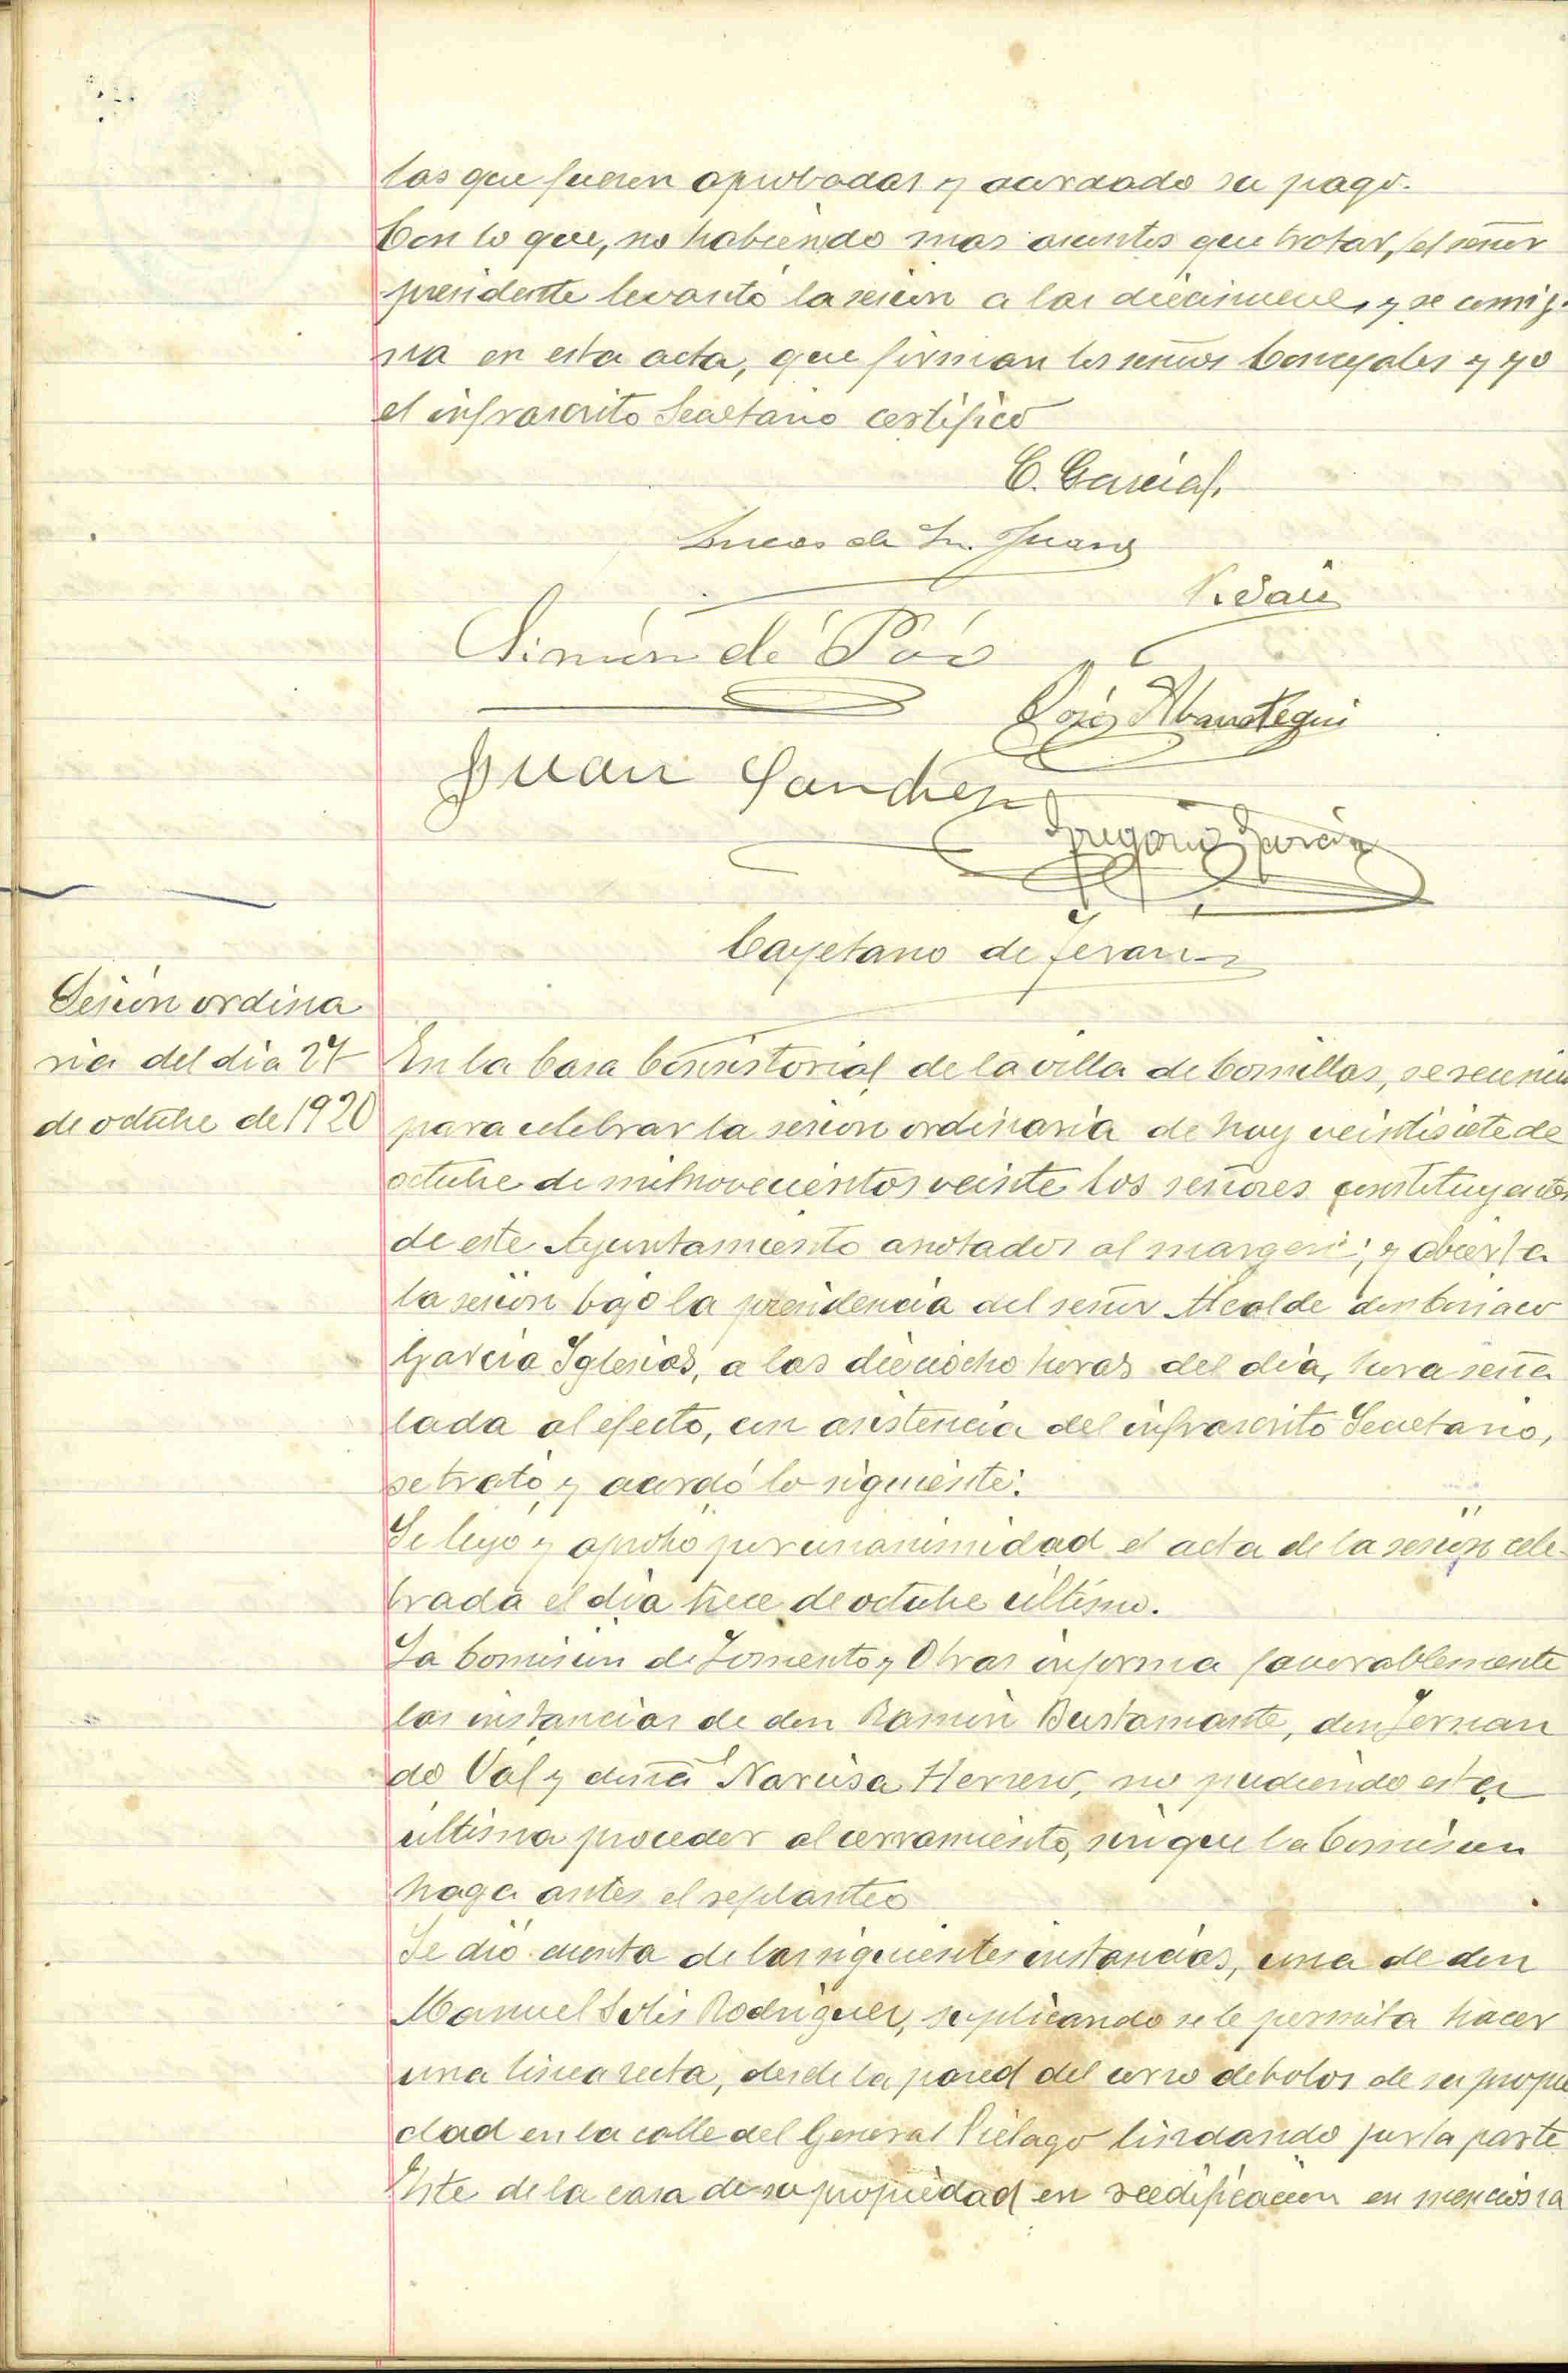 las que fueron aprobadas y acordado su pago.
Con lo que, no habiendo mas asuntos que tratar, el señor
presidente levantó la sesion a las diecinueve, y se consig-
na en esta acta, que firman los señores Concejales y yo
el infrascrito Secretario certifico
C. Garcia I.
Lucas de Sn. Juan
Simón de Pós
José Abarategui
Juan Sanchez
Gregorio Garcia
Cayetano de Teran
Sesion ordina
ria del dia 27
de octubre de 1920
En la Casa Consistorial de la villa de Comillas, se reunen
para celebrar la sesion ordinaria de hoy veintisiete de
octubre de mil novecientos veinte los señores constituyentes
de este Ayuntamiento anotados al margen; y abierta
la sesion bajo la presidencia del señor Alcalde don Ciriaco
Garcia Iglesias, a las dieciocho horas del dia, hora seña
lada al efecto, con asistencia del infrascrito Secretario,
se trató y acordó lo siguiente:
Se leyo y aprobo por unanimidad el acta de la sesion cele-
brada el dia trece de octubre último.
La Comision de Fomento y Obras informa favorablemente
las instancias de don Ramón Bustamante, don Fernan
do Val y doña Narcisa Herrero, no pudiendo esta
ultima proceder al cerramiento, sin que la Comision
haga antes el replanteo
Se dió cuenta de las siguientes instancias, una de don
Manuel Solis Rodriguez, suplicando se le permita hacer
una linea recta, desde la pared del corro de bolos de su propie
dad en la calle del General Piélago lindando por la parte
Este de la casa de su propiedad en reedificacion en menciona